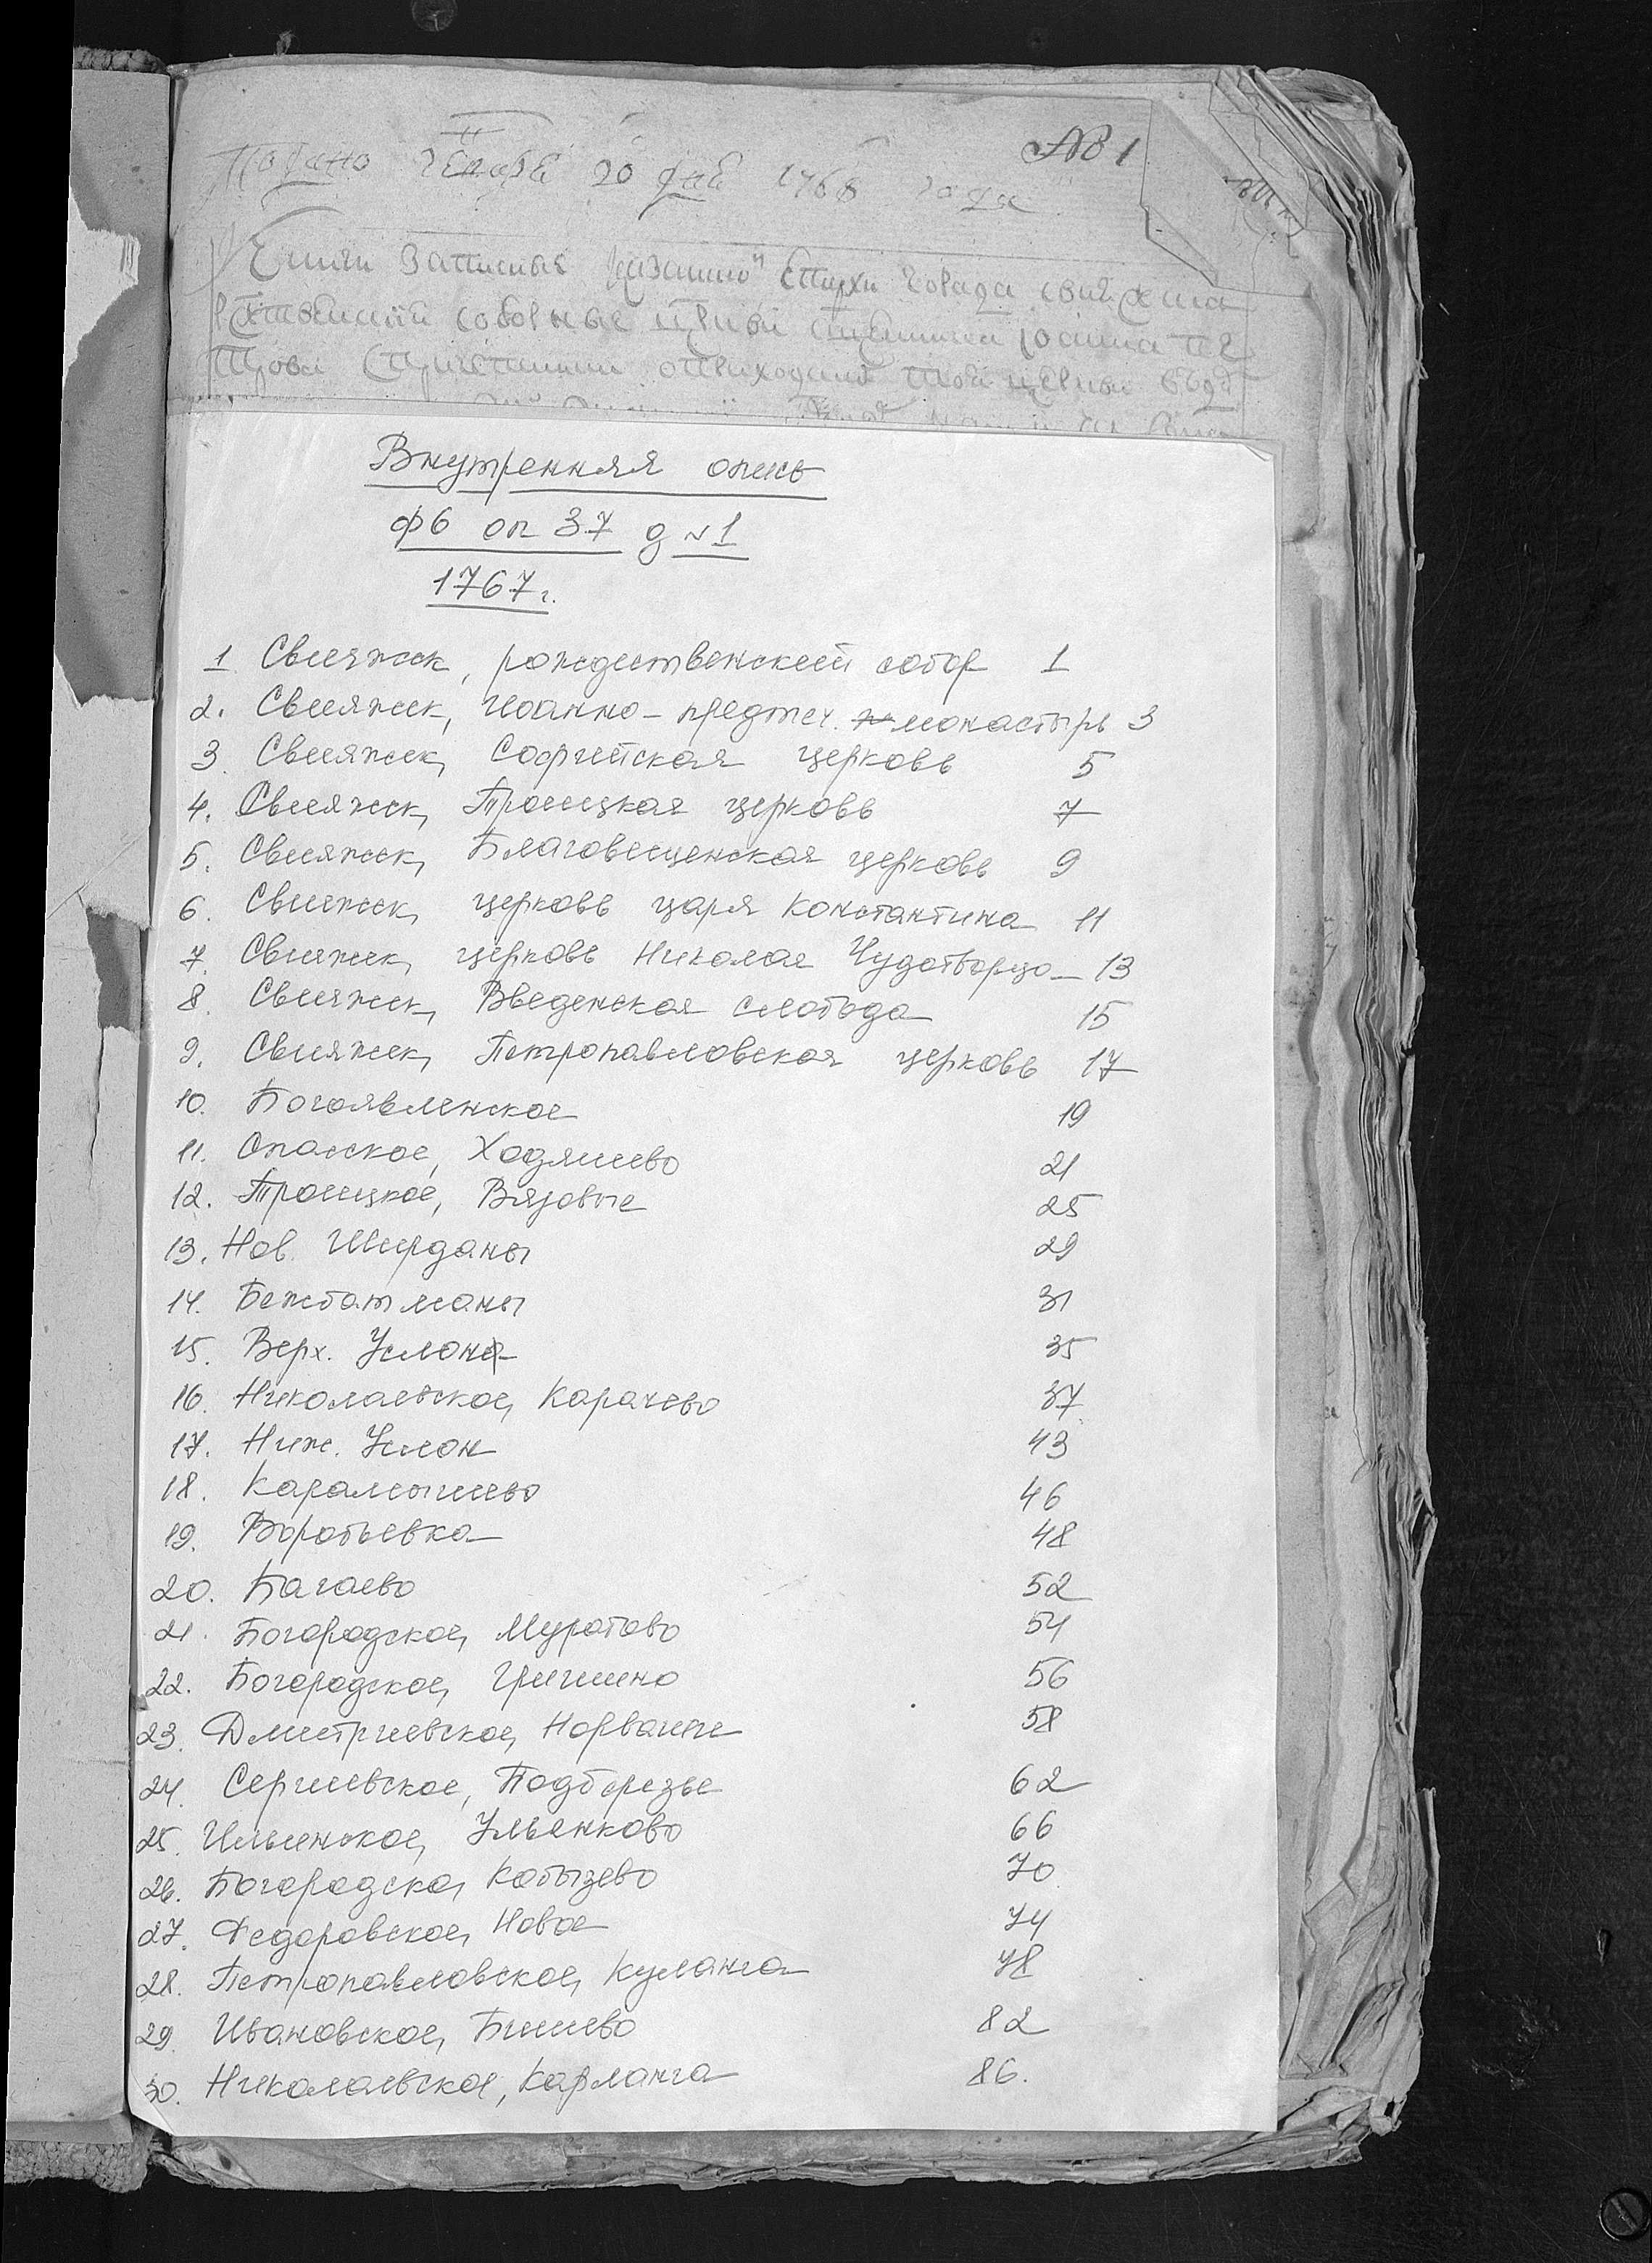 № 1
Подано генваря 20 дня 1768 года
Книги записныя казанской епархи города свияжска
соборныя церкви
Внутренняя опись
ф 6 оп 37 д № 1
1767 г.
1 Свияжск, рождественский собор 1
2. Свияжск, Иоанно-предтеч. монастырь 3
3. Свияжск, Софийская церковь 5
4. Свияжск, Троицкая церковь 7
5. Свияжск, Благовещенская церковь 9
6. Свияжск, церковь царя Константина 11
7. Свияжск, церковь Николая Чудотворца 13
8. Свияжск, Введенская слобода 15
9. Свияжск, Петропавловская церковь 17
10. Богоявленское 19
11. Спасское, Ходяшево 21
12. Троицкое, Вязовые 25
13. Нов. Ширданы 29
14. Бежбатманы 31
15. Верх. Услон 35
16. Николаевское, Карачево 37
17. Ниж. Услон 43
18. Карамышево 46
19. Воробьевка 48
20. Багаево 52
21. Богородское, Муратово 54
22. Богородское, Гришино 56
23. Дмитриевское, Норваши 58
24. Сергиевское, Подберезье 62
25. Ильинское, Ульянково 66
26. Богородско, Кобызево 70
27. Федоровское, Новое 74
28. Петропавловское, Куланга 78
29. Ивановское, Бишево 82
30. Николаевское, Карланга 86.